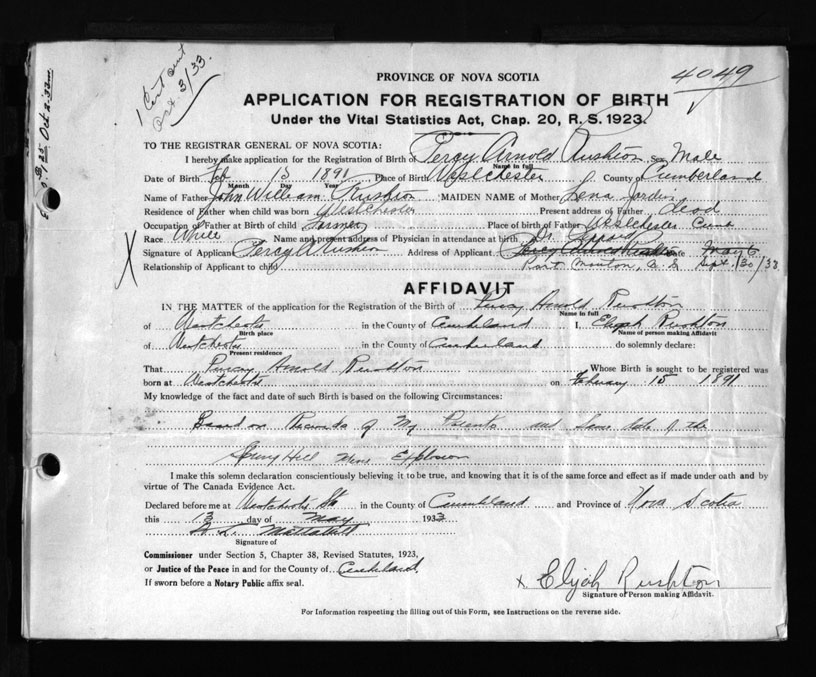 1 Cert sent
Oct 3/33.
Oct 2. 33
PROVINCE OF NOVA SCOTIA
4049
APPLICATION FOR REGISTRATION OF BIRTH
Under the Vital Statistics Act, Chap. 20, R. S. 1923.
TO THE REGISTRAR GENERAL OF NOVA SCOTIA:
I hereby make application for the Registration of Birth of Percy Arnold Rushton Sex Male
Name in full
Date of Birth Feb 15 1891 Place of Birth Westchester County of Cumberland
Month Day Year
Name of Father John William Rushton MAIDEN NAME of Mother Lena Jardin
Residence of Father when child was born Westchester Present address of Father Dead
Occupation of Father at Birth of child Farmer Place of birth of Father Westchester Cum
Race White Name and present address of Physician in attendance at birth Dr.
Signature of Applicant Percy A Rushton Address of Applicant Date May 6
Relationship of Applicant to child Port Sept. 30/33.
X
AFFIDAVIT
IN THE MATTER of the application for the Registration of the Birth of Percy Arnold Rushton
Name in full
of Westchester in the County of Cumberland I, Elijah Rushton
Birth place Name of person making Affidavit
of Westchester in the County of Cumberland do solemnly declare:
Present residence
That Percy Arnold Rushton Whose Birth is sought to be registered was
born at Westchester on February 15 1891
My knowledge of the fact and date of such Birth is based on the following Circumstances:
Based on Records of My Parents and Same date of the
Spring Hill Mine Explosion
I make this solemn declaration conscientiously believing it to be true, and knowing that it is of the same force and effect as if made under oath and by
virtue of The Canada Evidence Act.
Declared before me at Westchester Sta in the County of Cumberland and Province of Nova Scotia
this 13 day of May 1933
Signature of
Commissioner under Section 5, Chapter 38, Revised Statutes, 1923,
or Justice of the Peace in and for the County of Cumberland.
If sworn before a Notary Public affix seal.
x Elijah Rushton
Signature of Person making Affidavit.
For Information respecting the filling out of this Form, see Instructions on the reverse side.